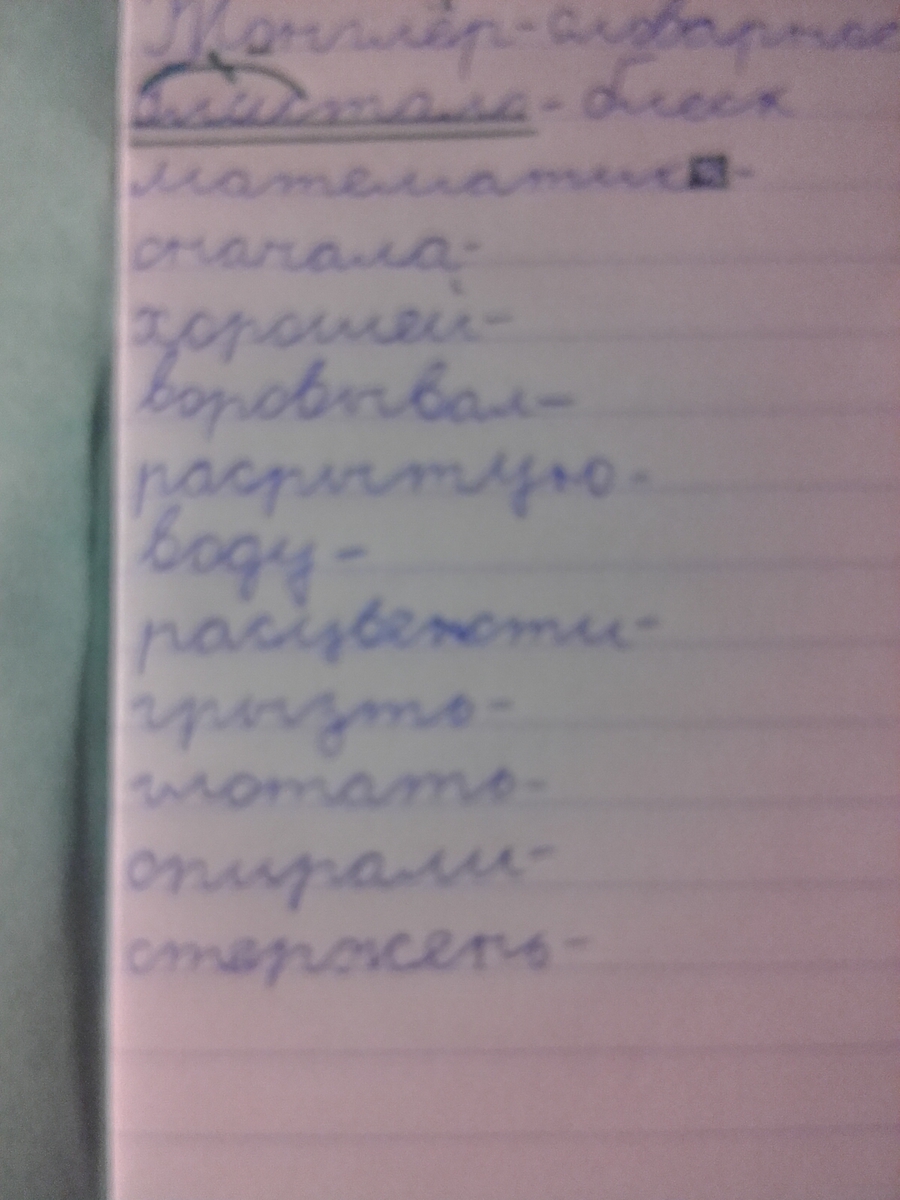 Жонглёр - словарное
блистала - блеск
математик -
сначала -
хорошей -
воровывал -
расрытую -
воду -
расцвести -
грызть -
глотать -
опирали -
стержень -